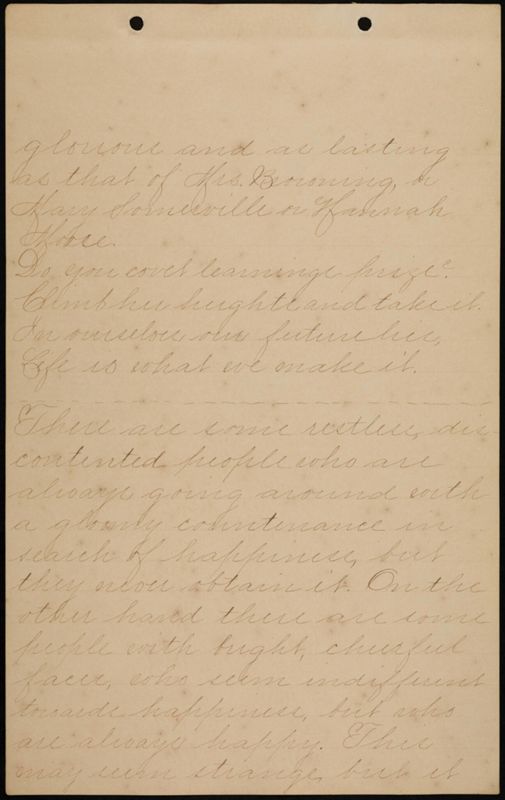 glorious and as lasting
as that of Mrs. Browning, or
Mary Somerville or Hannah
Moore.
Do you covet learnings prize?
Climb her heights and take it.
In ourselves our future lies,
Life is what we make it.
There are some restless, dis-
contented people who are
always going around with
a gloomy countenance in
search of happiness, but
they never obtain it. On the
other hand there are some
people with bright, cheerful
faces, who seem indifferent
towards happiness, but who
are always happy. This
may seem strange, but it